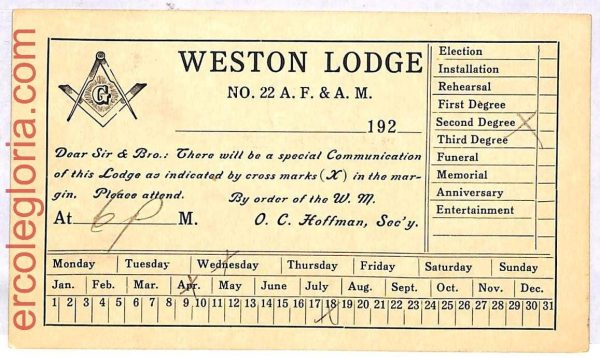 ercolegloria.com
G
WESTON LODGE
NO. 22 A. F. & A. M.
192
Dear Sir & Bro.: There will be a special Communication
of this Lodge as indicated by cross marks (X) in the mar-
gin. Please attend. By order of the W. M.
At 6 P M. O. C. Hoffman, Sec'y.
Election
Installation
Rehearsal
First Degree
Second Degree X
Third Degree
Funeral
Memorial
Anniversary
Entertainment
Monday Tuesday Wednesday Thursday Friday Saturday Sunday
Jan. Feb. Mar. Apr. May June July Aug. Sept. Oct. Nov. Dec.
1 2 3 4 5 6 7 8 9 10 11 12 13 14 15 16 17 18 19 20 21 22 23 24 25 26 27 28 29 30 31